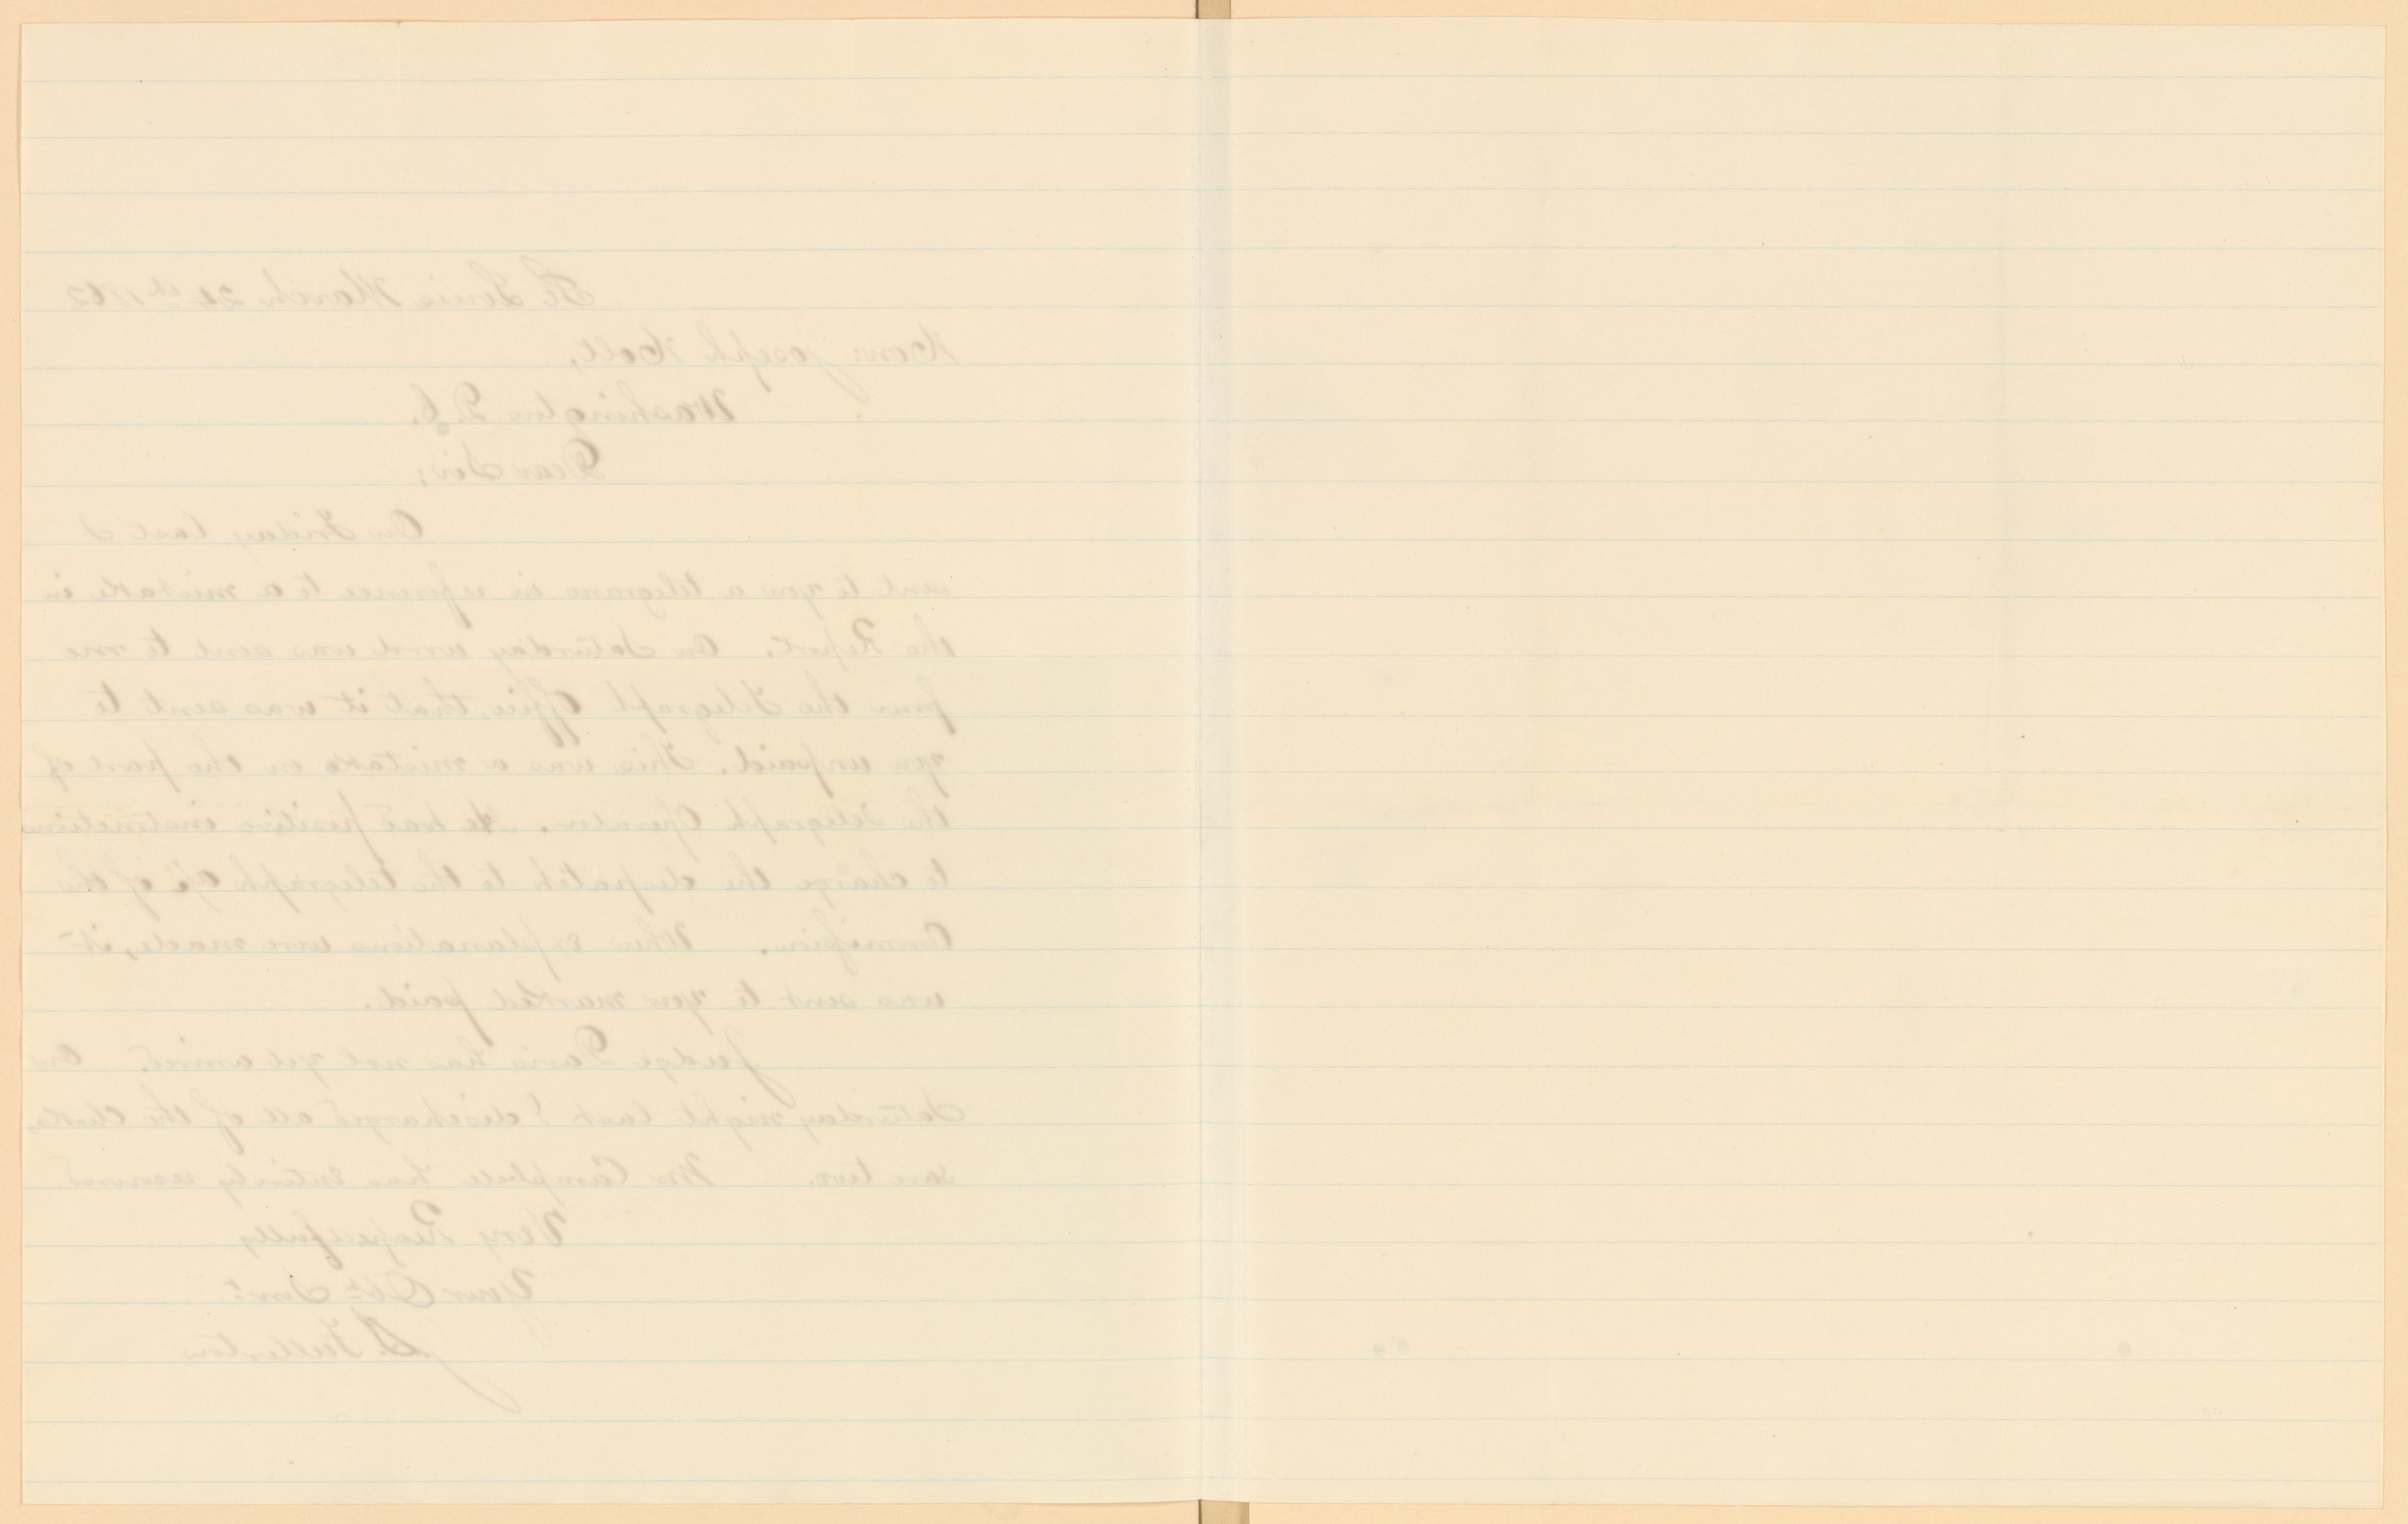 St Louis March 24th 1862
Hon: Joseph Holt,
Washington D.C.
Dear Sir;
On Friday last I
sent to you a telegram in reference to a mistake in
the Report. On Saturday word was sent to me
from the Telegraph Office, that it was sent to
you unpaid. This was a mistake on the part of
the telegraph Operator. He had positive instructions
to charge the despatch to the telegraph of the
Commission. When explanations were made, it
was sent to you marked paid.
Judge Davis has not yet arrived. On
Saturday night last I discharged all of the clerks,
save two. Mr Campbell has entirely recovered.
Very Respectfully
Your Obt Servt
Fullerton